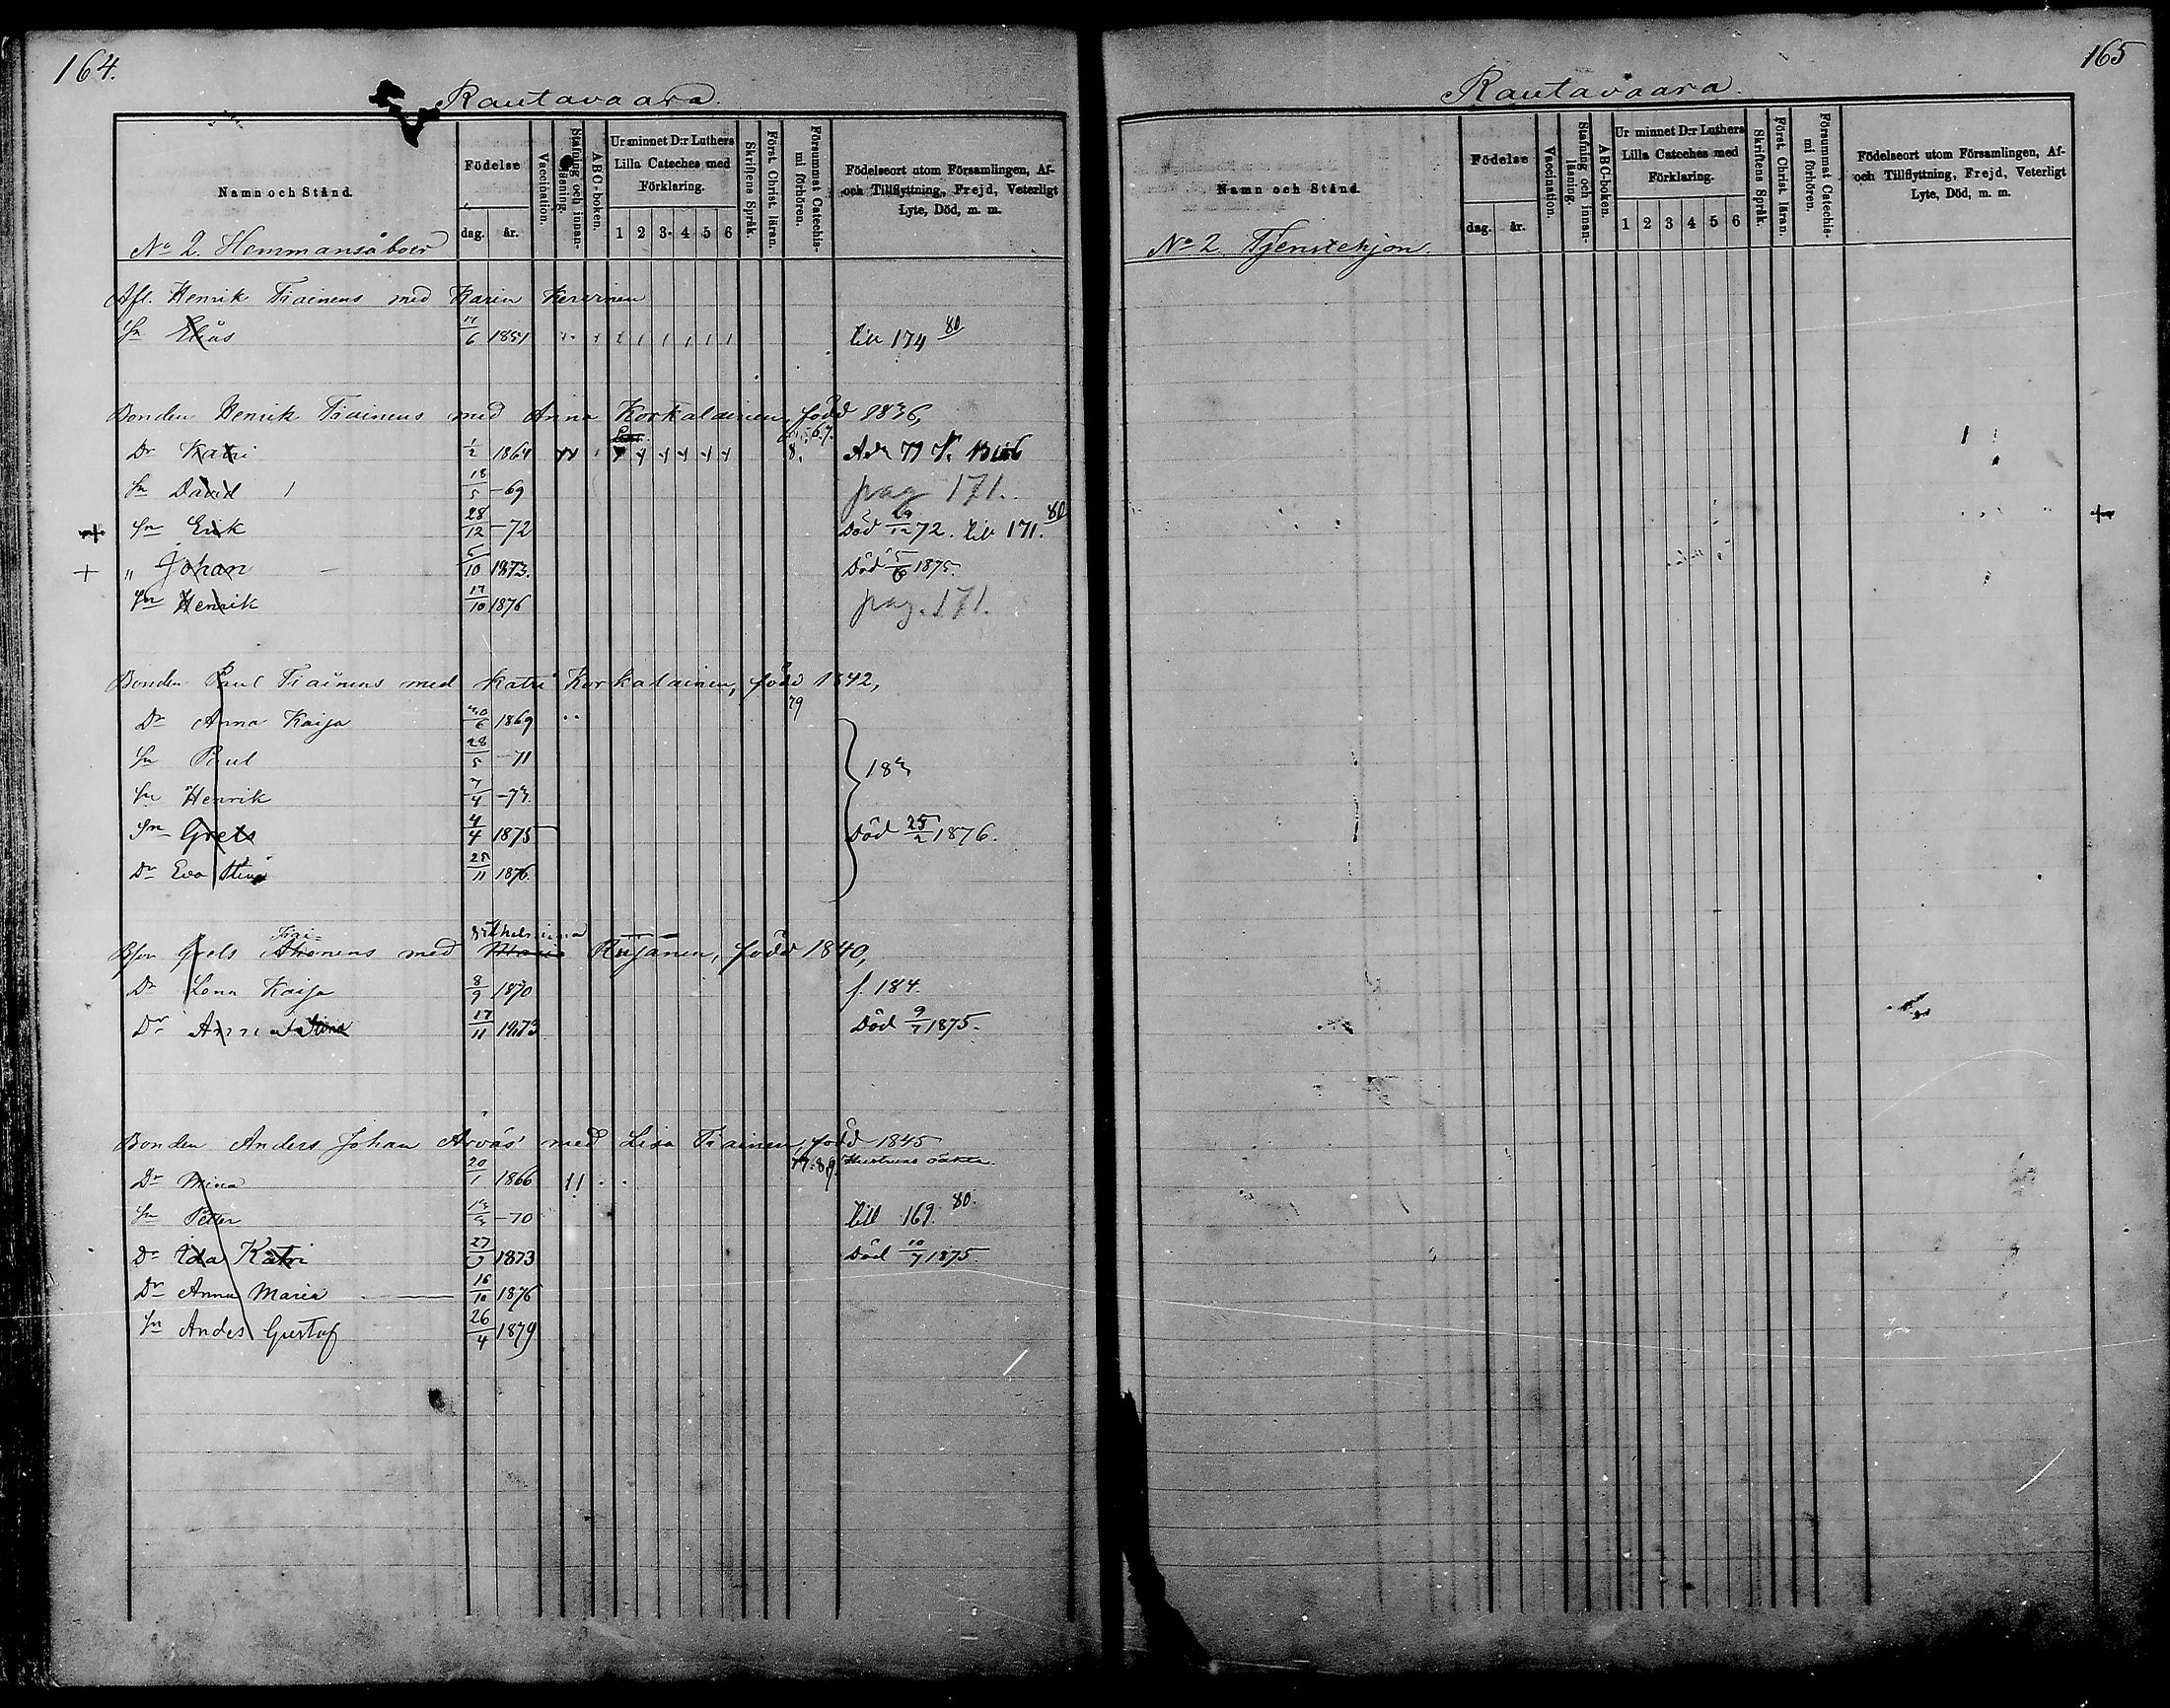 164.
Rautavaara.
Namn och Stånd.
Födelse
dag. år.
Vaccination.
Stafning och innanläsning.
ABC-boken.
Ur minnet D:r Luthers Lilla Cateches med Förklaring.
1 2 3 4 5 6
Skriftens Språk.
Först. Christ. läran.
Försummat Catechismi förhören.
Födelseort utom Församlingen, Af- och Tillflyttning, Frejd, Veterligt Lyte, Död, m. m.
No 2. Hemmansåboer
Afl. Henrik Tiainens med Karin
Sn Elias 17/6 1851 till 174 80
Bonden Henrik Tiainens med Anna Korkalainen, född 1836,
Dr Katri 1/2 1864
Sn David 18/5 -69 pag 171.
Sn Erik 28/12 -72 Död 29/12 72. till 171. 80
" Johan 5/10 1873. Död 5/6 1875.
Sn Henrik 17/10 1876 pag. 171.
Bonden Paul Tiainens med Katri Korkalainen, född 1842,
79
Dr Anna Kaija 30/6 1869
Sn Paul 28/5 -71
183
Sn Henrik 7/4 -73.
Sn Grels 4/4 1875 Död 25/2 1876.
Dr Eva Stina 25/11 1876.
Tiai- Vilhelmina
Grels Ahonens med Maria Reijonen, född 1840,
Dr Lena Kaija 8/9 1870 f. 184.
Dr Anna Stina 17/11 1873 Död 9/7 1875.
Bonden Anders Johan med Lisa Tiainen, född 1845
Dr Mina 20/1 1866 77.89. Hustruns oäkta.
Sn Petter 13/3 -70 till 169. 80.
Dr Ida Katri 27/9 1873 Död 10/7 1875.
Dr Anna Maria 16/10 1876
Sn Andes Gustaf 26/4 1879
165
Rautavaara.
Namn och Stånd.
Födelse
dag. år.
Vaccination.
Stafning och innanläsning.
ABC-boken.
Ur minnet D:r Luthers Lilla Cateches med Förklaring.
1 2 3 4 5 6
Skriftens Språk.
Först. Christ. läran.
Försummat Catechismi förhören.
Födelseort utom Församlingen, Af- och Tillflyttning, Frejd, Veterligt Lyte, Död, m. m.
No 2. Tjenstehjon.